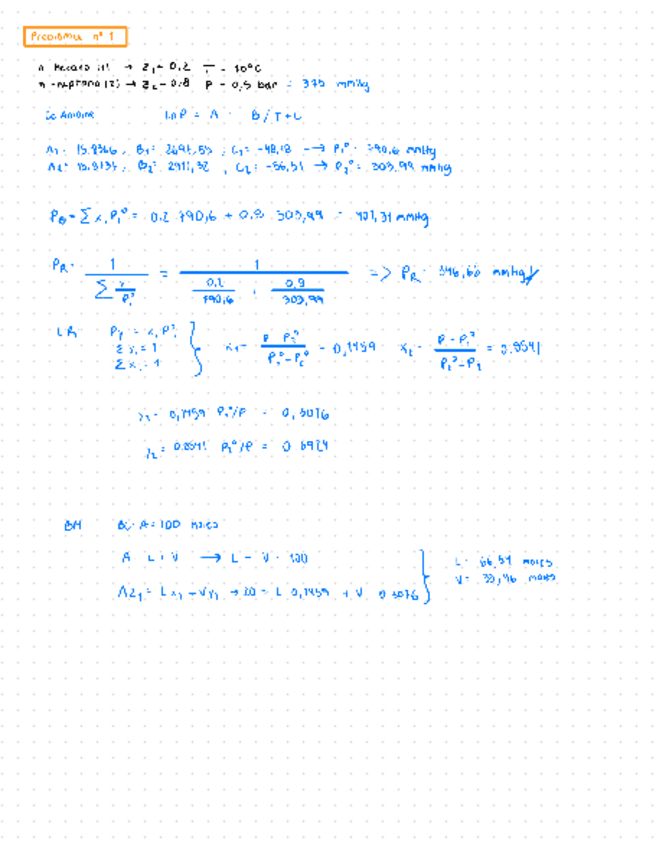 Problema nº 1
n-hexano (1) → Z₁ = 0,2 T = 70°C
n-heptano (2) → Z₂ = 0,8 P = 0,5 bar = 375 mmHg
Ec Antoine ln P = A - B/T+C
A₁ = 15.8366, B₁ = , C₁ = -48,78 → P₁° = 790,6 mmHg
, B₂ = , C₂ = -56,51 → P₂° = 303,99 mmHg
P_B = Σ x, P₁° = 0.2 790,6 + 0,8 303,99 = 401,31 mmHg
P_R = 1 / Σ = 1 / 0,2/790,6 + 0,8/303,99 => P_R = mmHg
LR P = x, P°
Σ y = 1
Σ x = 1
x₁ = P - P₂° / P₁° - P₂° = 0,1459 x₂ = = 0.8541
y₁ = 0,1459 P₁°/P = 0,3076
y₂ = 0.8541 P₂°/P = 0.6924
BM BC: A = 100 moles
A = L + V → L + V = 100
AZ₁ = L x₁ + V y₁ → 20 = L 0,1459 + V 0.3076
L = 66,54 moles
V = 33,46 moles